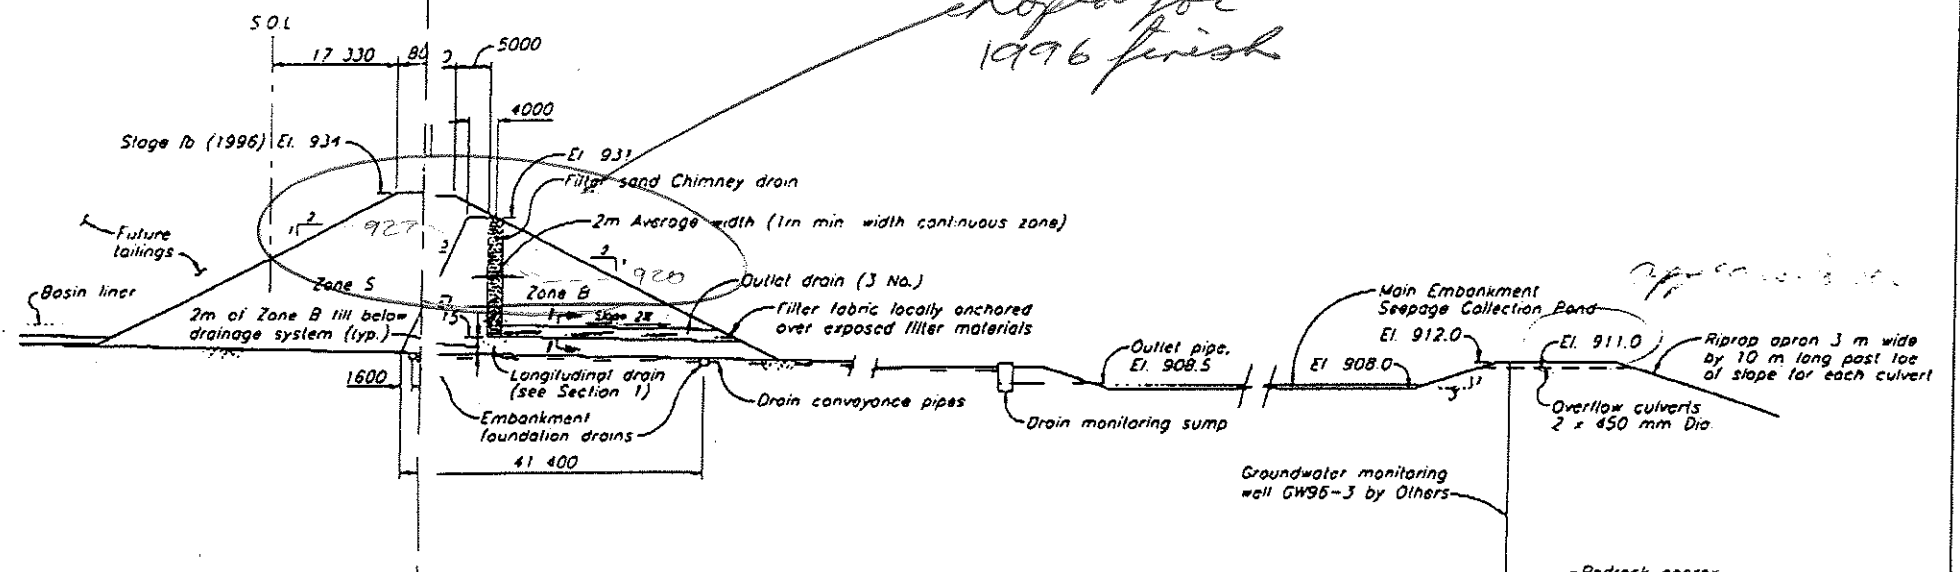 1996 finish
SOL
17 330
80
5000
4000
Stage 1b (1996) El. 934
El 931
Filter sand Chimney drain
2m Average width (1m min width continuous zone)
2
1
927
920
Future
tailings
Basin liner
Zone S
Zone B
2m of Zone B fill below
drainage system (typ.)
Outlet drain (3 No.)
Slope 2%
Filter fabric locally anchored
over exposed filter materials
1600
Longitudinal drain
(see Section 1)
Embankment
foundation drains
Drain conveyance pipes
41 400
Drain monitoring sump
Outlet pipe,
El. 908.5
Main Embankment
Seepage Collection Pond
El 908.0
El. 912.0
El. 911.0
Riprap apron 3 m wide
by 10 m long past toe
of slope for each culvert
Overflow culverts
2 x 450 mm Dia.
Groundwater monitoring
well GW96-3 by Others